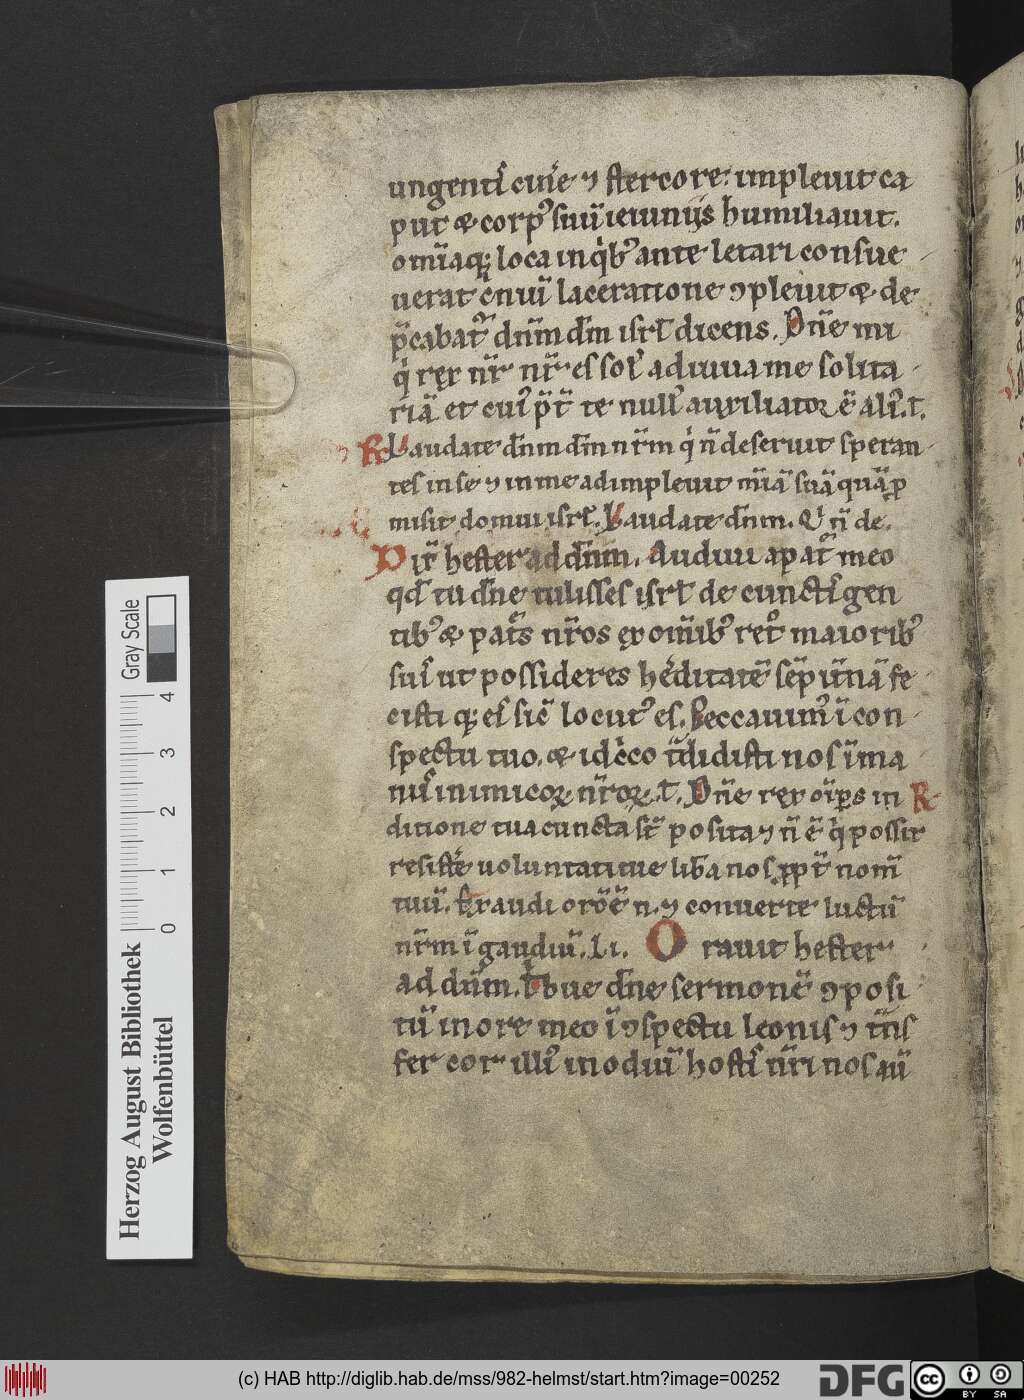 ungenti̾ cine̾ ⁊ stercore· impleuit ca
put & corpꝰ suū ieiuniis humiliauit.
omīaq; loca in qͥbꝰ ante letari consue
uerat c̾niū laceratione ꝯpleuit & de
p̄cabatͬ dn̄m dm̄ isrł dicens. Dn̄e mi
qͥ rex nr̄ nr̄ es solꝰ adiuua me solita
riā et cuiꝰ p̄t̄ te nullꝰ auxiliator ē aliꝰ. T.
R Laudate dn̄m dm̄ nr̄m qͥ n̄ deseruit speran
tes in se ⁊ in me adimpleuit mīā suā quā ꝓ
misit domui isrł. Laudate dn̄m. Qͥ n̄ de.
Dix̄ hester ad dn̄m. Audiui a patͤ meo
qd̄ tu dn̄e tulisses isrł de cunctiſ gen
tibꝰ & patͤs nr̄os ex omībꝰ retͦ maioribꝰ
suiſ ut possideres he̾ditatē sēpit̄nā fe
cisti q; eiſ sic̄ locutꝰ es. Peccauimꝰ ī con
spectu tuo. & idcͥco t̄didisti nos ī ma
nuſ inimicoꝝ nr̄oꝝ. T. Dn̄e rex oīp̄s in R
ditione tua cuncta st̄ posita ⁊ n̄ ē qͥ possit
resiste̾ uoluntati tue lib̄a nos ꝓpt̄ nom̄
tuū. Exaudi orōē n. ⁊ conuerte luctū
nr̄m ī gaudiū. Li. Orauit hester
ad dn̄m. Tͥbue dn̄e sermonē ꝯposi
tū in ore meo ī ꝯspectu leonis ⁊ t̄ns
fer cor illiꝰ in odiū hostiſ nr̄i nos aū
Herzog August Bibliothek
Wolfenbüttel
Gray Scale
0 1 2 3 4
(c) HAB http://diglib.hab.de/mss/982-helmst/start.htm?image=00252
DFG
cc BY SA